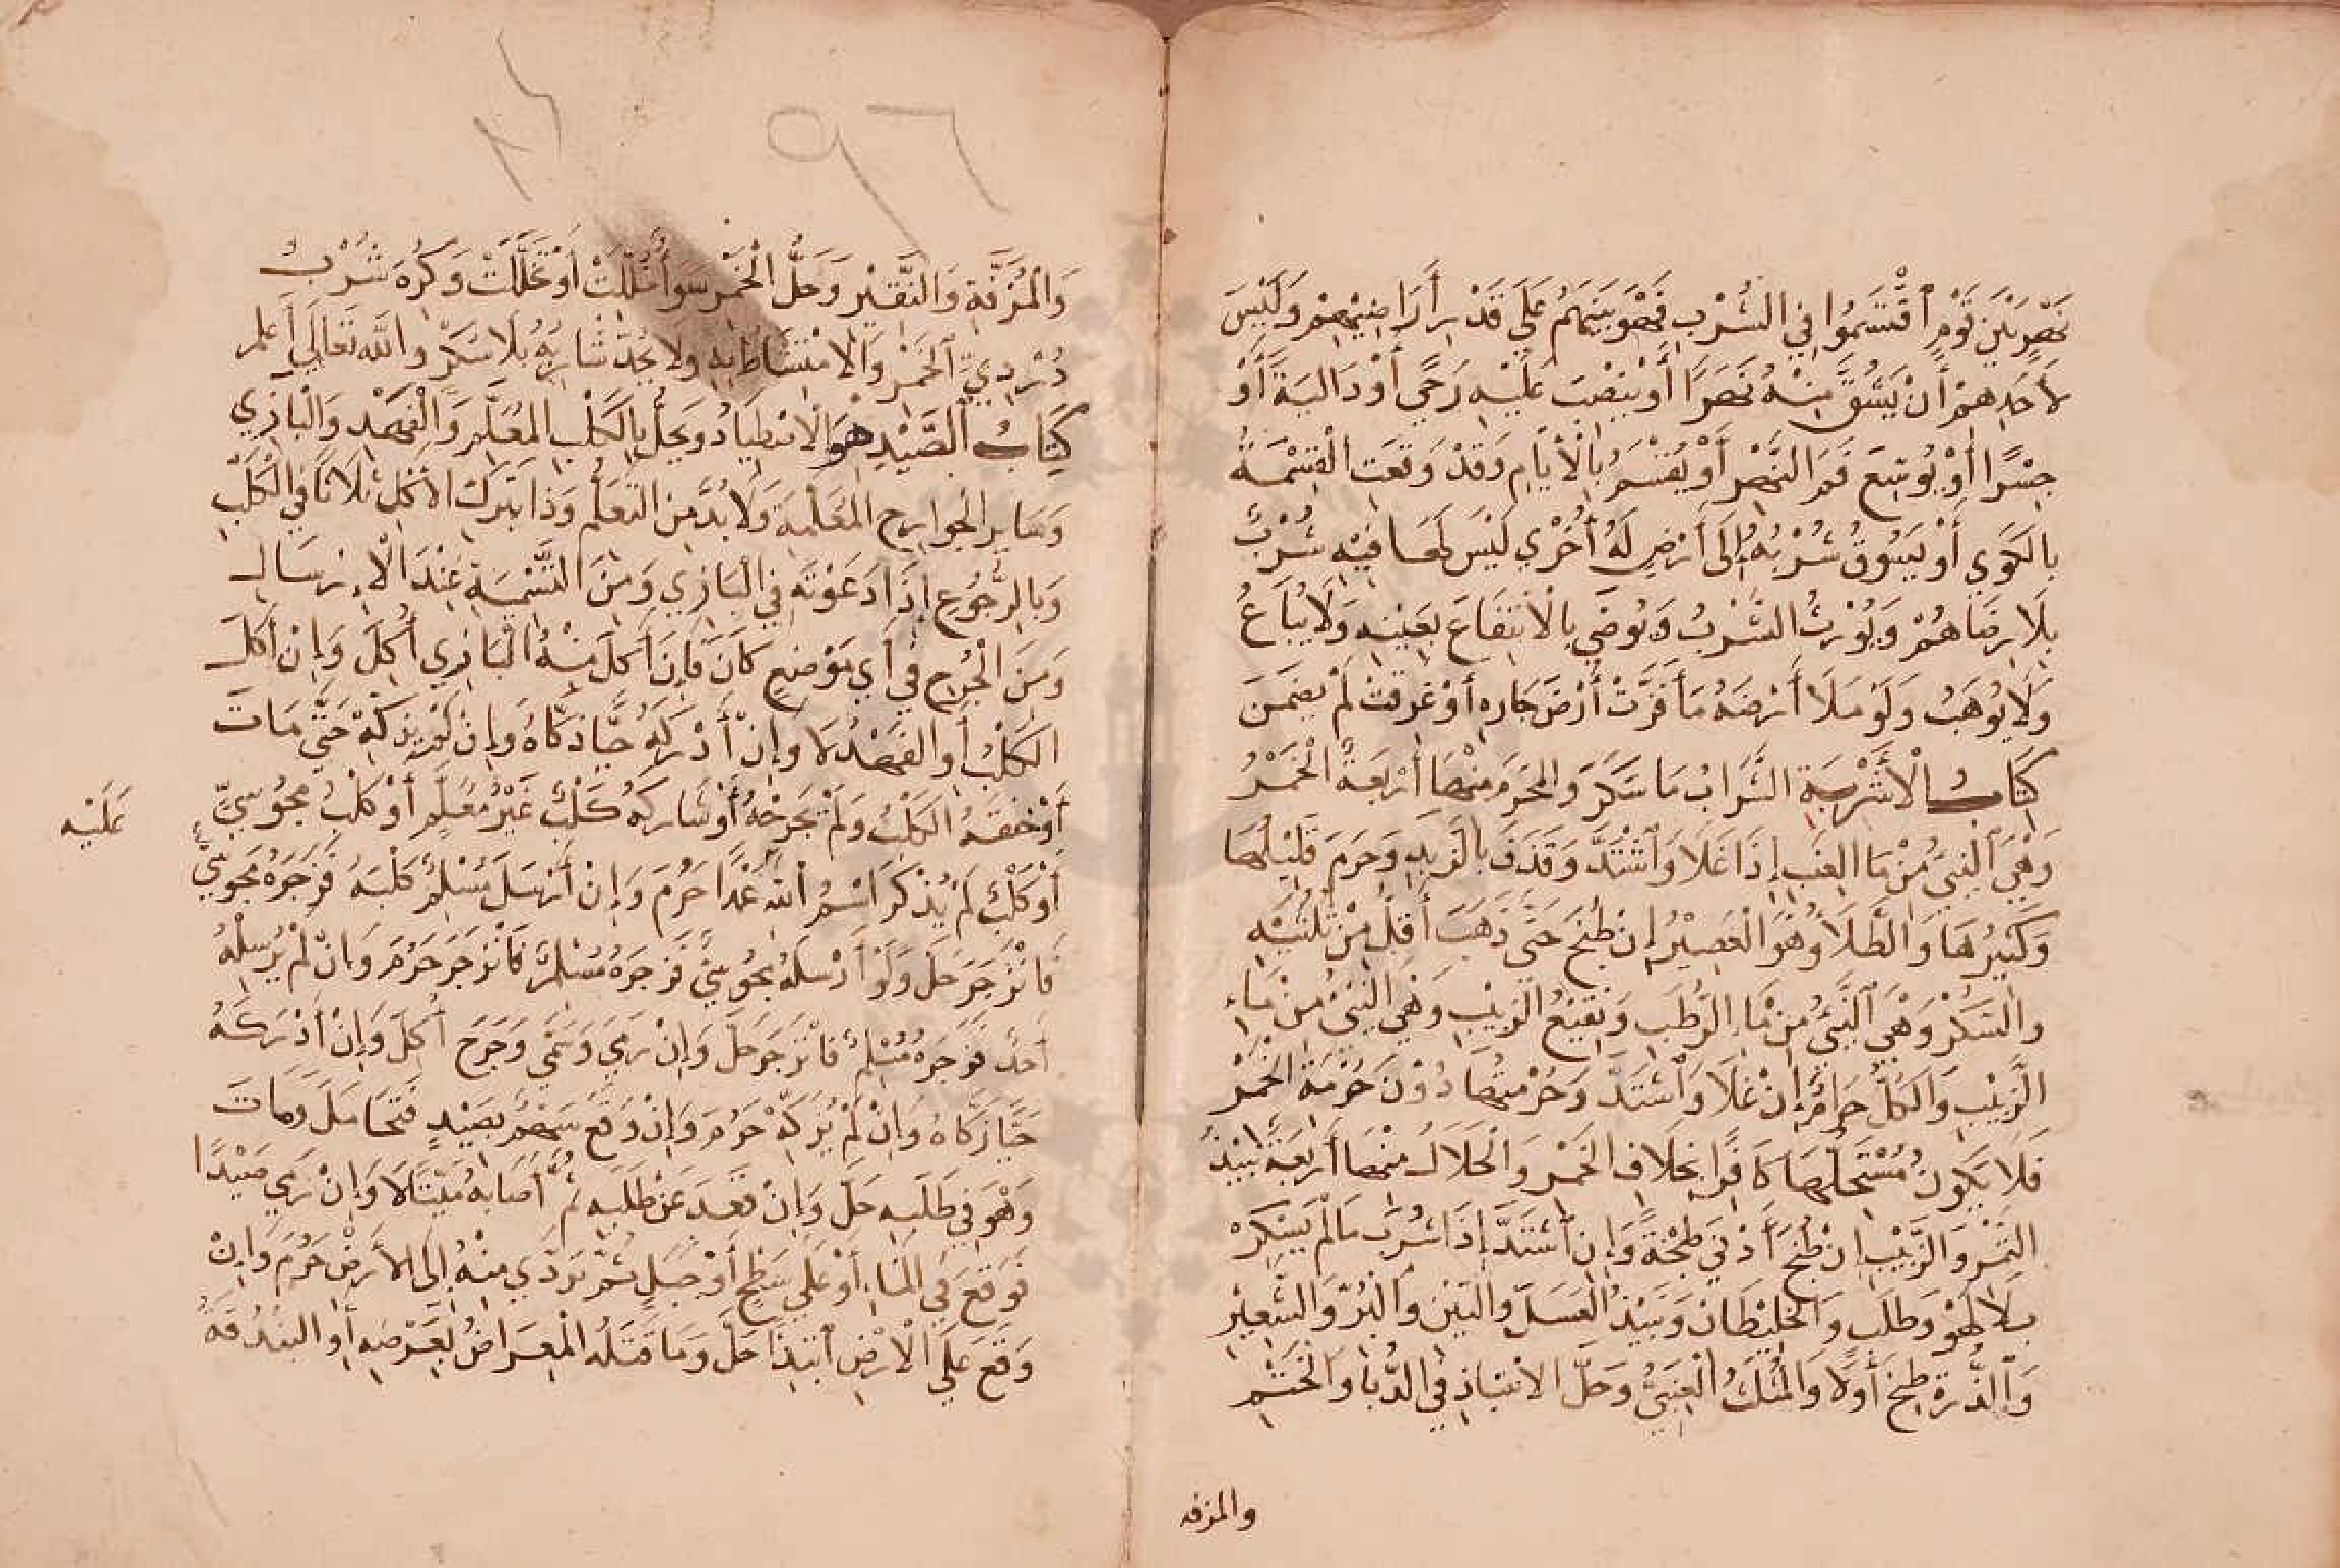 نهر بين قوم اقتسموا في الشرب فهو بينهم على قدر أراضيهم وليس
لأحدهم أن يشق منه نهرا أو ينصب عليه رحى أو دالية أو
جسرا أو يوسع فم النهر أو يقسم بالأيام وقد وقعت القسمة
بالكوي أو يسوق شربه إلى أرض له أخرى ليس لها فيه شرب
بلا رضاهم ويورث الشرب ويوصي بالانتفاع بعينه ولا يباع
ولا يوهب ولو ملأ أرضه ما فنزت أرض جاره أو غرقت لم يضمن
كتاب الأشربة الشراب ما سكر والمحرم منها أربعة الخمر
وهي النيئ من ما العنب إذا غلا واشتد وقذف بالزبد وحرم قليلها
وكثيرها والطلا وهو العصير إن طبخ حتى ذهب أقل من ثلثيه
والسكر وهي النيئ من ماء الرطب ونقيع الزبيب وهي النيئ من ماء
الزبيب والكل حرام إن غلا واشتد وحرمتها دون حرمة الخمر
فلا يكون مستحلها كافرا بخلاف الخمر والحلال منها أربعة نبيذ
التمر والزبيب إن طبخ أدنى طبخة وإن اشتد إذا شرب ما لم يسكره
بلا لهو وطلب والخليطان ونبيذ العسل والتين والبر والشعير
والذرة طبخ أولا والمثلث العنبي وحل الانتباذ في الدبا والحنتم
والمزفه
٩٦
والمزفة والنقير وحل الخمر سوا خللت أو تخللت وكره شرب
دردي الخمر والامتشاط به ولا يحد شاربه بلا سكر والله تعالى أعلم
كتاب الصيد هو الاصطياد ويحل بالكلب المعلم والفهد والبازي
وساير الجوارح المعلمة ولا بد من التعلم وذا بترك الأكل ثلاثا في الكلب
وبالرجوع إذا دعوته في البازي ومن التسمية عند الإرسال
ومن الجرح في أي موضع كان فإن أكل منه البازي أكل وإن أكل
الكلب أو الفهد لا وإن أدركه حيا ذكاه وإن لم يذكه حتى مات
أو خنقه الكلب ولم يجرحه أو شاركه كلب غير معلم أو كلب مجوسي
عليه
أو كلب لم يذكر اسم الله عمدا حرم وإن أرسل مسلم كلبه فزجره مجوسي
فانزجر حل ولو أرسله مجوسي فزجره مسلم فانزجر حرم وإن لم يرسله
أحد فزجره مسلم فانزجر حل وإن رمي وسمي وجرح أكل وإن أدركه
حيا زكاه وإن لم يزكه حرم وإن وقع سهم بصيد فتحامل ومات
وهو في طلبه حل وإن قعد عن طلبه ثم أصابه ميتا لا وإن رمي صيدا
فوقع في الماء أو على سطح أو جبل ثم تردي منه إلى الأرض حرم وإن
وقع على الأرض ابتدا حل وما قتله المعراض بعرضه أو البندقة